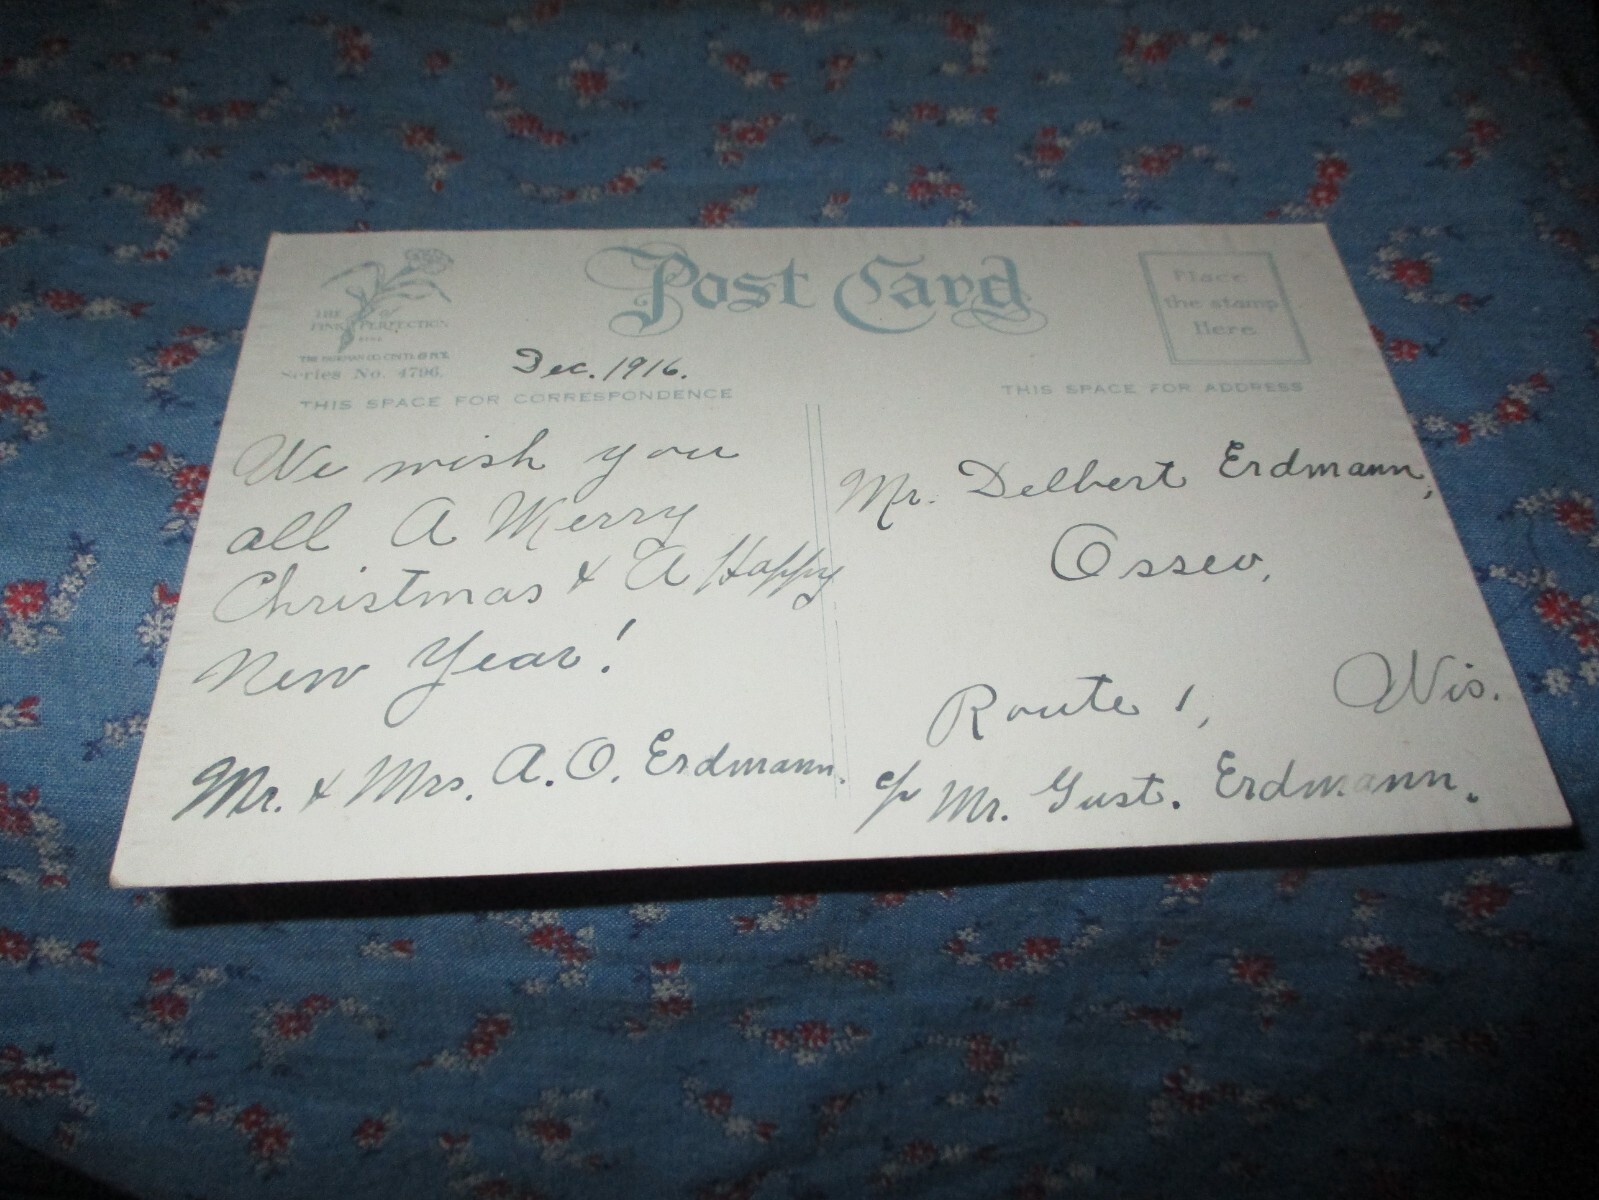 Post Card
Place
the stamp
Here
THE
PINK OF PERFECTION
Series No. 4796.
Dec. 1916.
THIS SPACE FOR CORRESPONDENCE
THIS SPACE FOR ADDRESS
We wish you
all A Merry
Christmas & A Happy
New Year!
Mr. & Mrs. A. O. Erdmann.
Mr. Delbert Erdmann,
Osseo,
Wis.
Route 1,
c/o Mr. Gust. Erdmann.